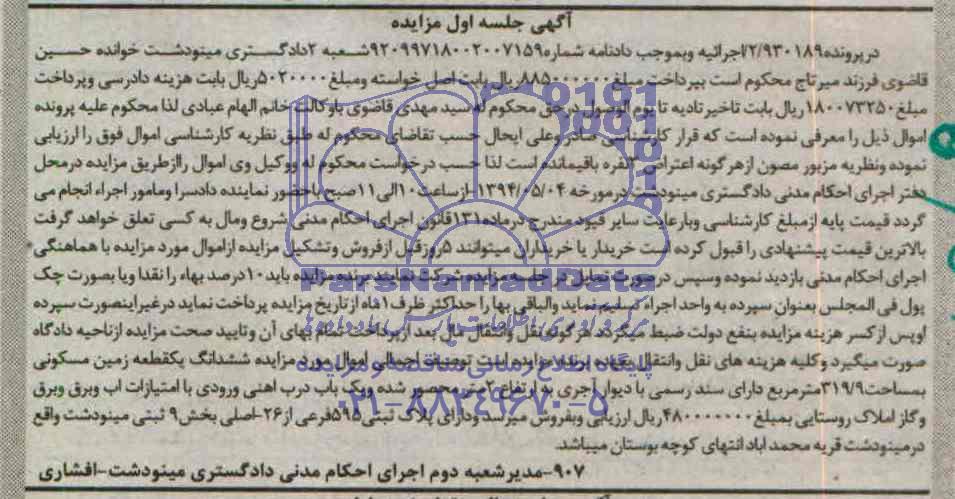 آگهی جلسه اول مزایده
درپرونده۲/۹۳۰۱۸۹اجرائیه وبموجب دادنامه شماره۹۲۰۹۹۷۱۸۰۰۲۰۰۷۱۵۹شعبه ۲دادگستری مینودشت خوانده حسین
قاضوی فرزند میرتاج محکوم است بپرداخت مبلغ۸۸۵۰۰۰۰۰۰ریال بابت اصل خواسته ومبلغ۵۰۲۰۰۰۰ریال بابت هزینه دادرسی وپرداخت
مبلغ۱۸۰۰۷۳۲۵۰ریال بابت تاخیر تادیه تا یوم الوصول درحق محکوم له سید مهدی قاضوی باوکالت خانم الهام عبادی لذا محکوم علیه پرونده
اموال ذیل را معرفی نموده است که قرار کارشناسی صادر وعلی ایحال حسب تقاضای محکوم له طبق نظریه کارشناسی اموال فوق را ارزیابی
نموده ونظریه مزبور مصون ازهرگونه اعتراض باقیمانده است لذا حسب درخواست محکوم له ووکیل وی اموال راازطریق مزایده درمحل
دفتر اجرای احکام مدنی دادگستری مینودشت درمورخه ۱۳۹۴/۰۵/۰۴-ازساعت۱۰الی۱۱صبح باحضور نماینده دادسرا ومامور اجراء انجام می
گردد قیمت پایه ازمبلغ کارشناسی وبارعایت سایر قیود مندرج درماده۱۳۱قانون اجرای احکام مدنی شروع ومال به کسی تعلق خواهد گرفت
بالاترین قیمت پیشنهادی را قبول کرده است خریدار یا خریداران میتوانند ۵روزقبل ازفروش وتشکیل مزایده ازاموال مورد مزایده با هماهنگی
اجرای احکام مدنی بازدید نموده وسپس درصورت تمایل در جلسه مزایده شرکت نمایند برنده مزایده باید۱۰درصد بهاء را نقدا ویا بصورت چک
پول فی المجلس بعنوان سپرده به واحد اجراء تسلیم نماید والباقی بها را حداکثر ظرف۱ماه ازتاریخ مزایده پرداخت نماید درغیراینصورت سپرده
اوپس ازکسر هزینه مزایده بنفع دولت ضبط میگردد هرگونه نقل وانتقال مال بعد ازپرداخت تمام بهای آن وتایید صحت مزایده ازناحیه دادگاه
صورت میگیرد وکلیه هزینه های نقل وانتقال بعهده برنده مزایده است توصیف اجمالی اموال مورد مزایده ششدانگ یکقطعه زمین مسکونی
بمساحت۳۱۹/۹مترمربع دارای سند رسمی با دیوار آجری به ارتفاع۲متر محصور شده ویک باب درب اهنی ورودی با امتیازات اب وبرق وبرق
وگاز املاک روستایی بمبلغ۴۸۰۰۰۰۰۰۰ریال ارزیابی وبفروش میرسد ودارای پلاک ثبتی۵۹۵فرعی از۲۶-اصلی بخش۹ ثبتی مینودشت واقع
درمینودشت قریه محمد اباد انتهای کوچه بوستان میباشد.
۹۰۷-مدیرشعبه دوم اجرای احکام مدنی دادگستری مینودشت-افشاری
ParsNamadData
پایگاه اطلاع رسانی مناقصه و مزایده
۰۲۱-۸۸۳۴۹۶۷۰-۵